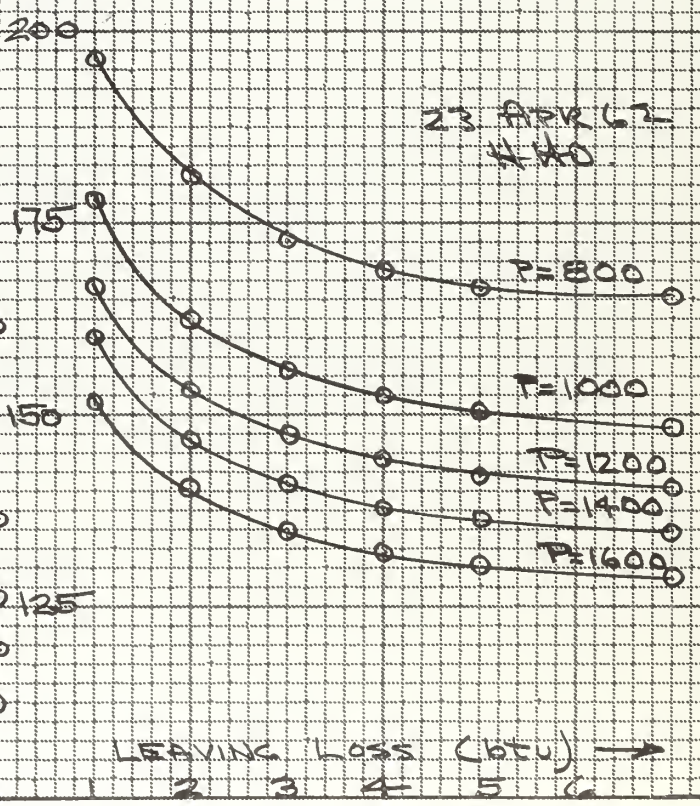 200
23 APR 62
175
P=800
P=1000
150
P=1200
P=1400
P=1600
125
LEAVING LOSS (btu) →
1 2 3 4 5 6